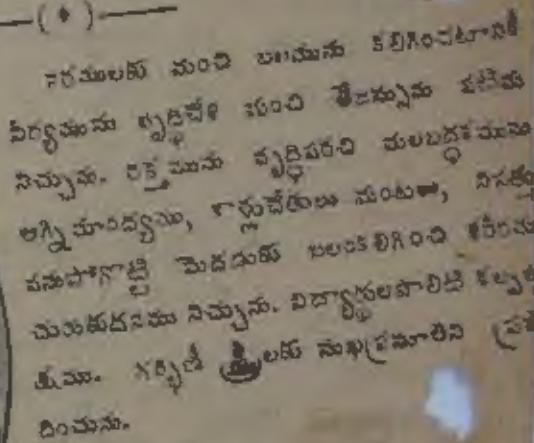 నరములకు మంచి బలమును కలిగించటానికీ
వీర్యమును వృద్ధిచేసి మంచి తేజస్సును పటిమ
నిచ్చును. రక్తమును వృద్ధిపరచి మలబద్ధకమును
అగ్నిమాంద్యము, కాళ్లుచేతులు మంటలు, నిసత్తు
వనుపోగొట్టి మెదడుకు బలంకలిగించి శరీరము
చురుకుదనము నిచ్చును. విద్యార్థులపాలిటి కల్ప
క్షము. గర్భిణీ స్త్రీలకు సుఖప్రసూతిని ప్ర
దించును.